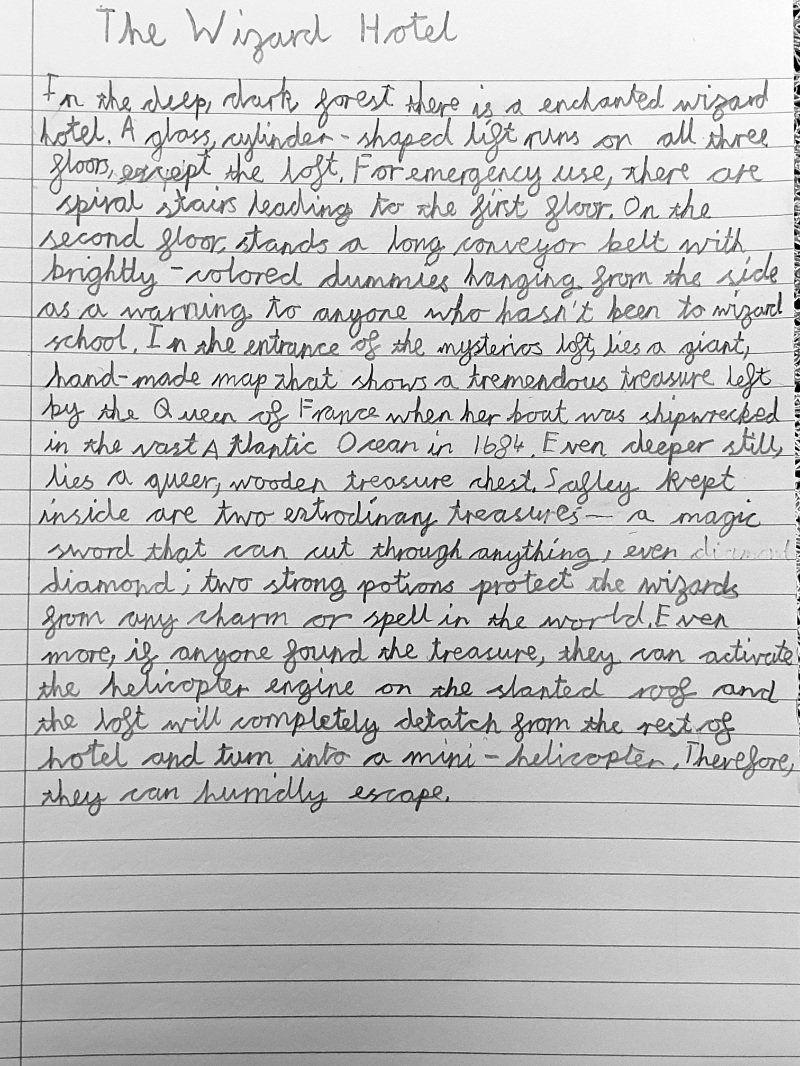 The Wizard Hotel
In the deep, dark forest there is a enchanted wizard
hotel. A glass, cylinder-shaped lift runs on all three
floors, except the loft. For emergency use, there are
spiral stairs leading to the first floor. On the
second floor, stands a long conveyor belt with
brightly-colored dummies hanging from the side
as a warning to anyone who hasn't been to wizard
school. In the entrance of the mysterios loft, lies a giant,
hand-made map that shows a tremendous treasure left
by the Queen of France when her boat was shipwrecked
in the vast Atlantic Ocean in 1684. Even deeper still,
lies a queer, wooden treasure chest. Safley kept
inside are two extrodinary treasures — a magic
sword that can cut through anything, even diamond
diamond; two strong potions protect the wizards
from any charm or spell in the world. Even
more, if anyone found the treasure, they can activate
the helicopter engine on the slanted roof and
the loft will completely detatch from the rest of
hotel and turn into a mini-helicopter. Therefore,
they can humidly escape.